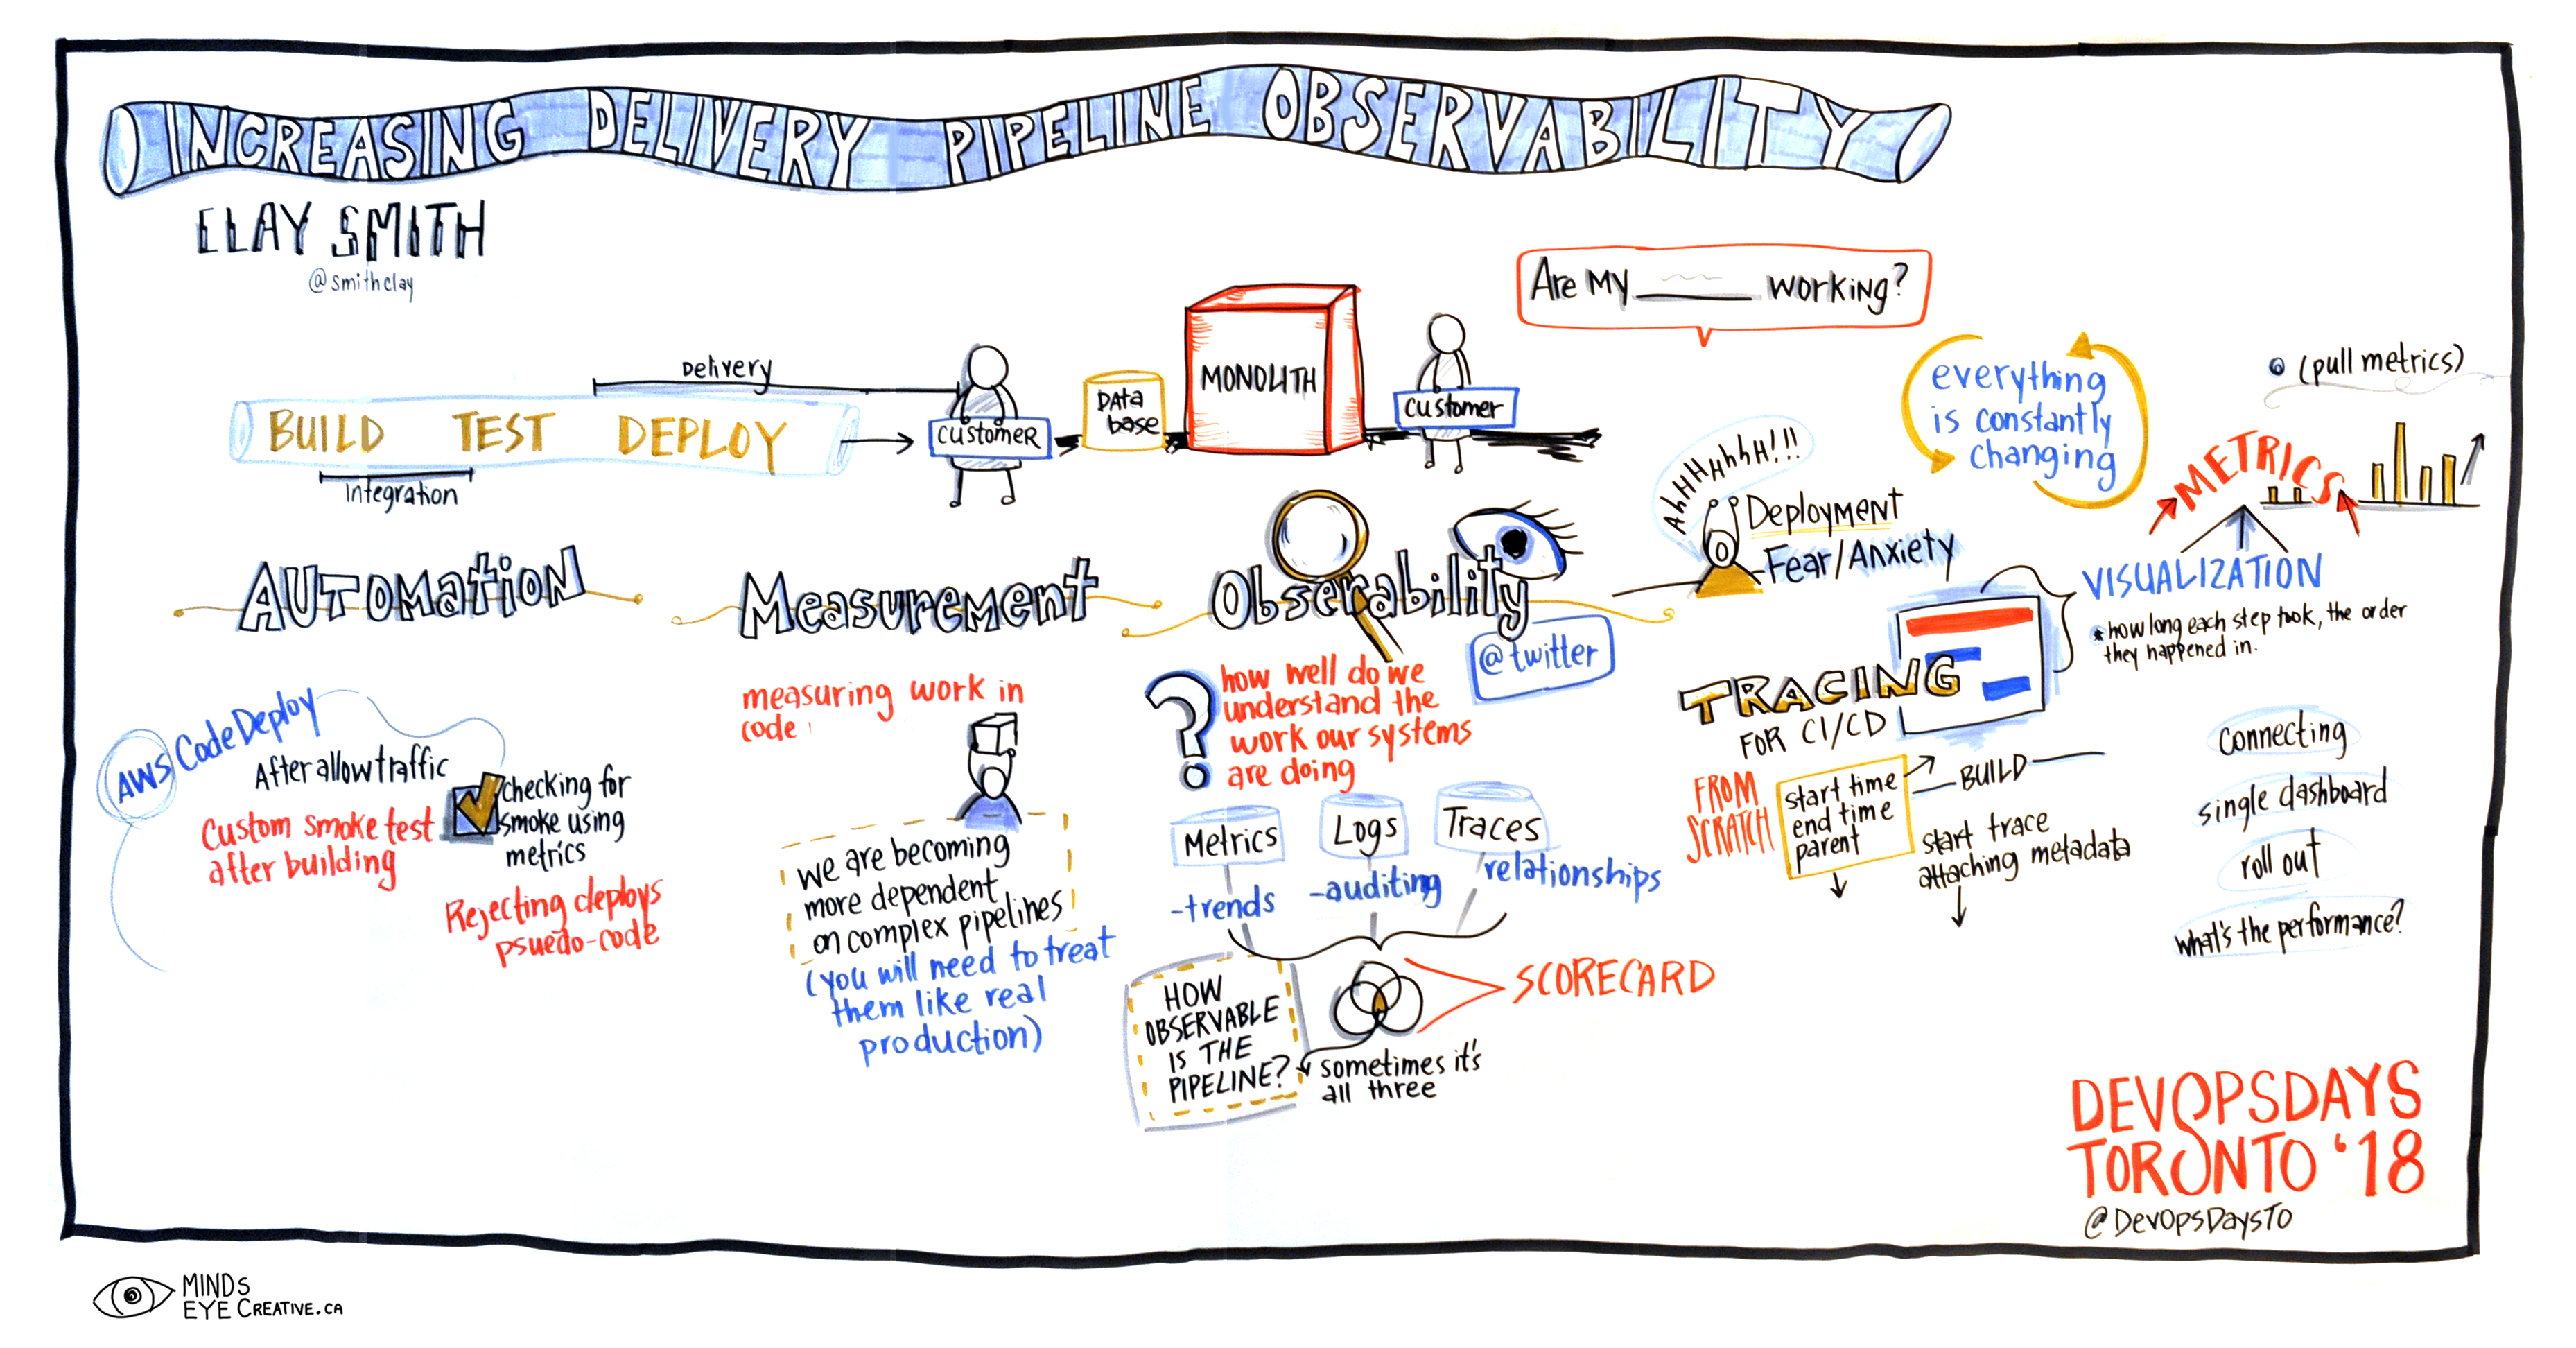 INCREASING DELIVERY PIPELINE OBSERVABILITY
CLAY SMITH
@smithclay
Delivery
BUILD TEST DEPLOY
Integration
CUSTOMER
DATA
base
MONOLITH
Customer
Are my ____ working?
AhHHHhhH!!!
Deployment
Fear/Anxiety
everything
is constantly
changing
(pull metrics)
METRICS
VISUALIZATION
*how long each step took, the order
they happened in.
AUTOMation
AWS CodeDeploy
After allow traffic
Custom smoke test
after building
checking for
smoke using
metrics
Rejecting deploys
psuedo-code
Measurement
measuring work in
code
we are becoming
more dependent
on complex pipelines
(you will need to treat
them like real
production)
Observability
@twitter
?
how well do we
understand the
work our systems
are doing
Metrics
-trends
Logs
-auditing
Traces
relationships
HOW
OBSERVABLE
IS THE
PIPELINE?
sometimes it's
all three
SCORECARD
TRACING
FOR CI/CD
FROM
SCRATCH
start time
end time
parent
BUILD
start trace
attaching metadata
connecting
single dashboard
roll out
what's the performance?
DEVOPSDAYS
TORONTO '18
@DevOpsDaysTO
MINDS
EYE CREATIVE.CA